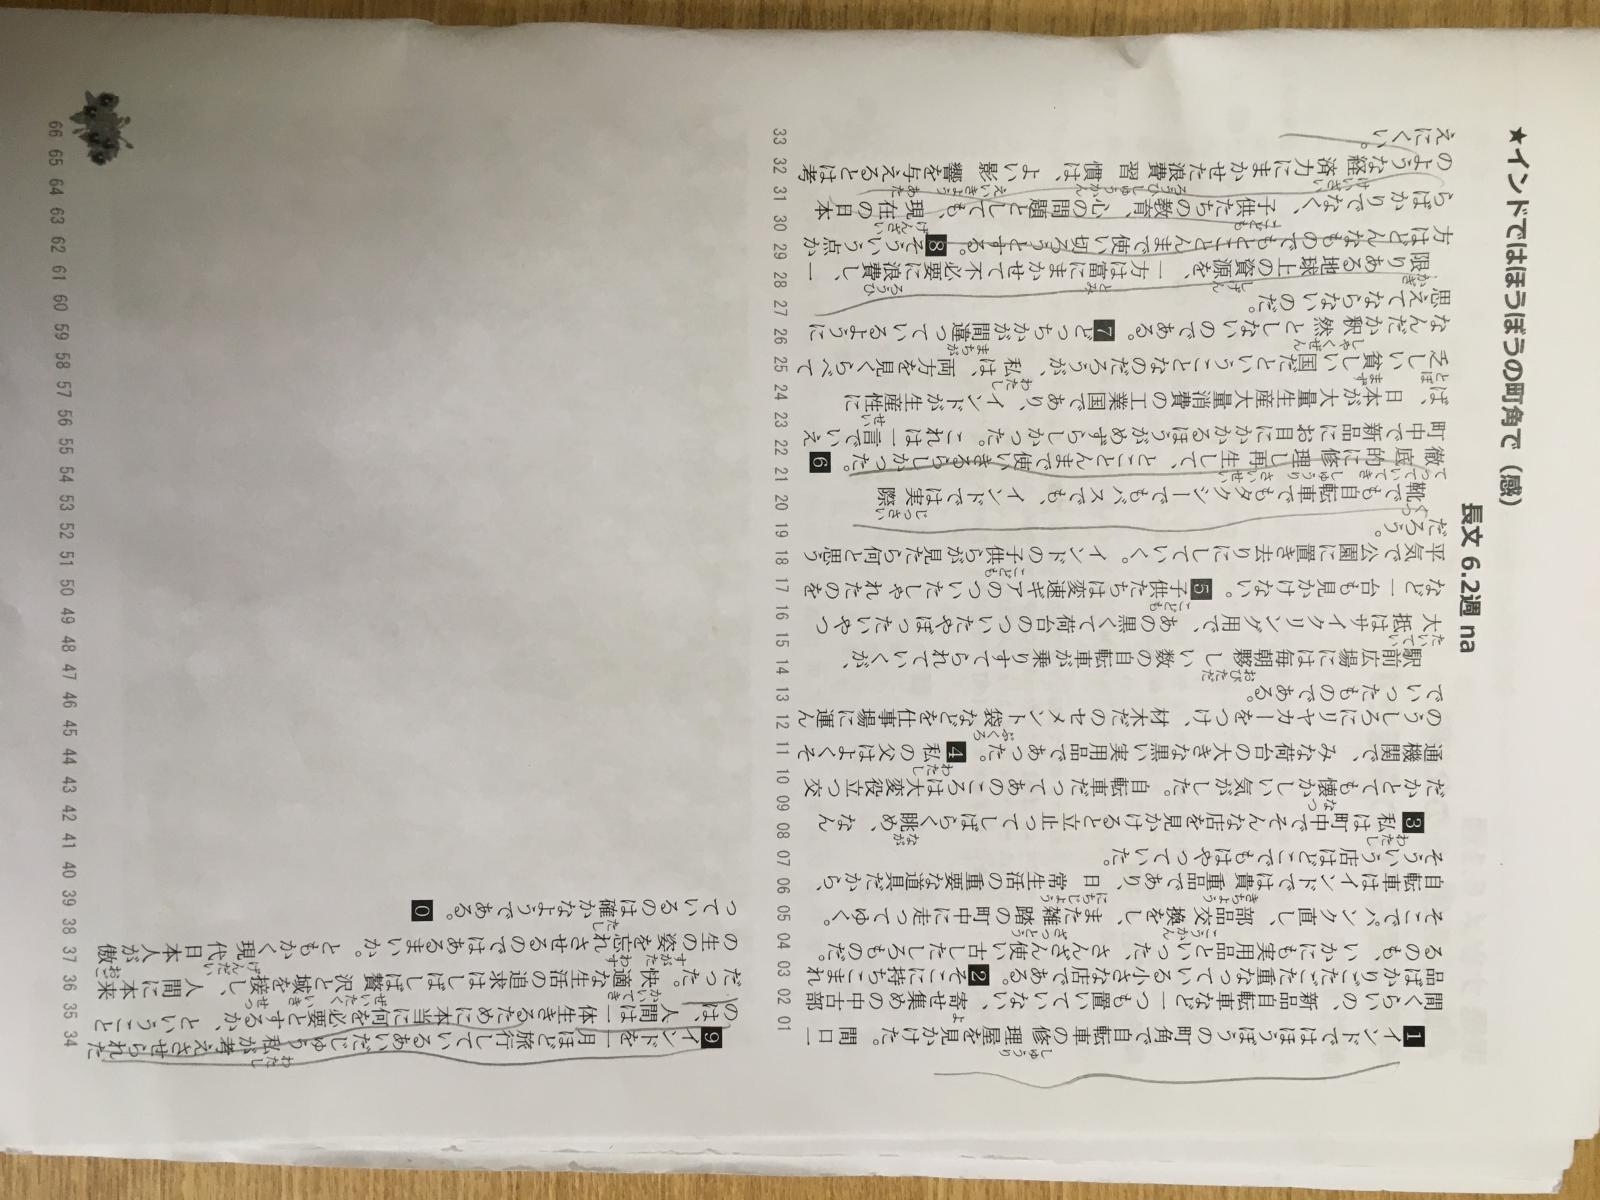 ★インドではほうぼうの町角で（感）
長文 6.2週 na
1 インドではほうぼうの町角で自転車の修理屋を見かけた。間口一
間くらいの、新品自転車など一つも置いていない、寄せ集めの中古部
品ばかりごたごた重なっている小さな店である。2 そこに持ちこまれ
るのも、いかにも実用品といった、さんざん使い古したしろものだ。
そこでパンク直し、部品交換をし、また雑踏の町中に走ってゆく。
自転車はインドでは貴重品であり、日常生活の重要な道具だから、
そういう店はどこでもはやっていた。
3 私は町中でそんな店を見かけると立止ってしばらく眺め、なん
だかとても懐かしい気がした。自転車だってあのころは大変役立つ交
通機関で、みな荷台の大きな黒い実用品であった。4 私の父はよくそ
のうしろにリヤカーをつけ、材木だのセメント袋などを仕事場に運ん
でいったものである。
駅前広場には毎朝夥しい数の自転車が乗りすてられていくが、
大抵はサイクリング用で、あの黒くて荷台のついたやぼったいやつ
など一台も見かけない。5 子供たちは変速ギアのついたしゃれたのを
平気で公園に置き去りにしていく。インドの子供らが見たら何と思う
だろう。
靴でも自転車でもタクシーでもバスでも、インドでは実際
徹底的に修理し再生して、とことんまで使いきるらしかった。6
町中で新品にお目にかかるほうがめずらしかった。これは一言でいえ
ば、日本が大量生産大量消費の工業国であり、インドが生産性に
乏しい貧しい国だということなのだろうが、私は、両方を見くらべて
なんだか釈然としないのである。7 どっちかが間違っているように
思えてならないのだ。
限りある地球上の資源を、一方は富にまかせて不必要に浪費し、一
方はどんなものでもとことんまで使い切ろうとする。8 そういう点か
らばかりでなく、子供たちの教育、心の問題としても、現在の日本
のような経済力にまかせた浪費習慣は、よい影響を与えるとは考
えにくい。
01 02 03 04 05 06 07 08 09 10 11 12 13 14 15 16 17 18 19 20 21 22 23 24 25 26 27 28 29 30 31 32 33
9 インドを一月ほど旅行しているあいだじゅう私が考えさせられた
のは、人間は一体生きるために本当に何を必要とするか、ということ
だった。快適な生活の追求はしばしば贅沢と域を接し、人間に本来
の生の姿を忘れさせるのではあるまいか。ともかく現代日本人が傲
っているのは確かなようである。0
34 35 36 37 38 39 40 41 42 43 44 45 46 47 48 49 50 51 52 53 54 55 56 57 58 59 60 61 62 63 64 65 66